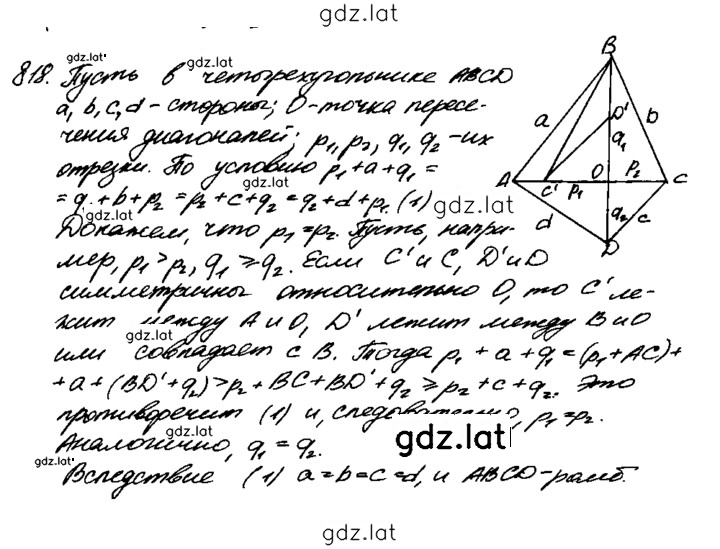 gdz.lat
gdz.lat
gdz.lat
818. Пусть в четырехугольнике ABCD
a, b, c, d – стороны; O – точка пересе-
чения диагоналей; p₁, p₂, q₁, q₂ – их
отрезки. По условию p₁ + a + q₁ =
= q₁ + b + p₂ = p₂ + c + q₂ = q₂ + d + p₁ (1)
gdz.lat
gdz.lat
Докажем, что p₁ = p₂. Пусть, напри-
мер, p₁ > p₂, q₁ ⩾ q₂. Если C' и C, D' и D
симметричны относительно O, то C' ле-
жит между A и O, D' лежит между B и O
gdz.lat
или совпадает с B. Тогда p₁ + a + q₁ = (p₁ + AC) +
+ a + (BD' + q₂) > p₂ + BC + BD' + q₂ ⩾ p₂ + c + q₂. Это
gdz.lat
противоречит (1) и, следовательно, p₁ = p₂.
gdz.lat
gdz.lat
Аналогично, q₁ = q₂.
gdz.lat
Вследствие (1) a = b = c = d, и ABCD – ромб.
gdz.lat
B
D'
a
b
q₁
A
C'
p₁
O
p₂
C
d
q₂
c
D